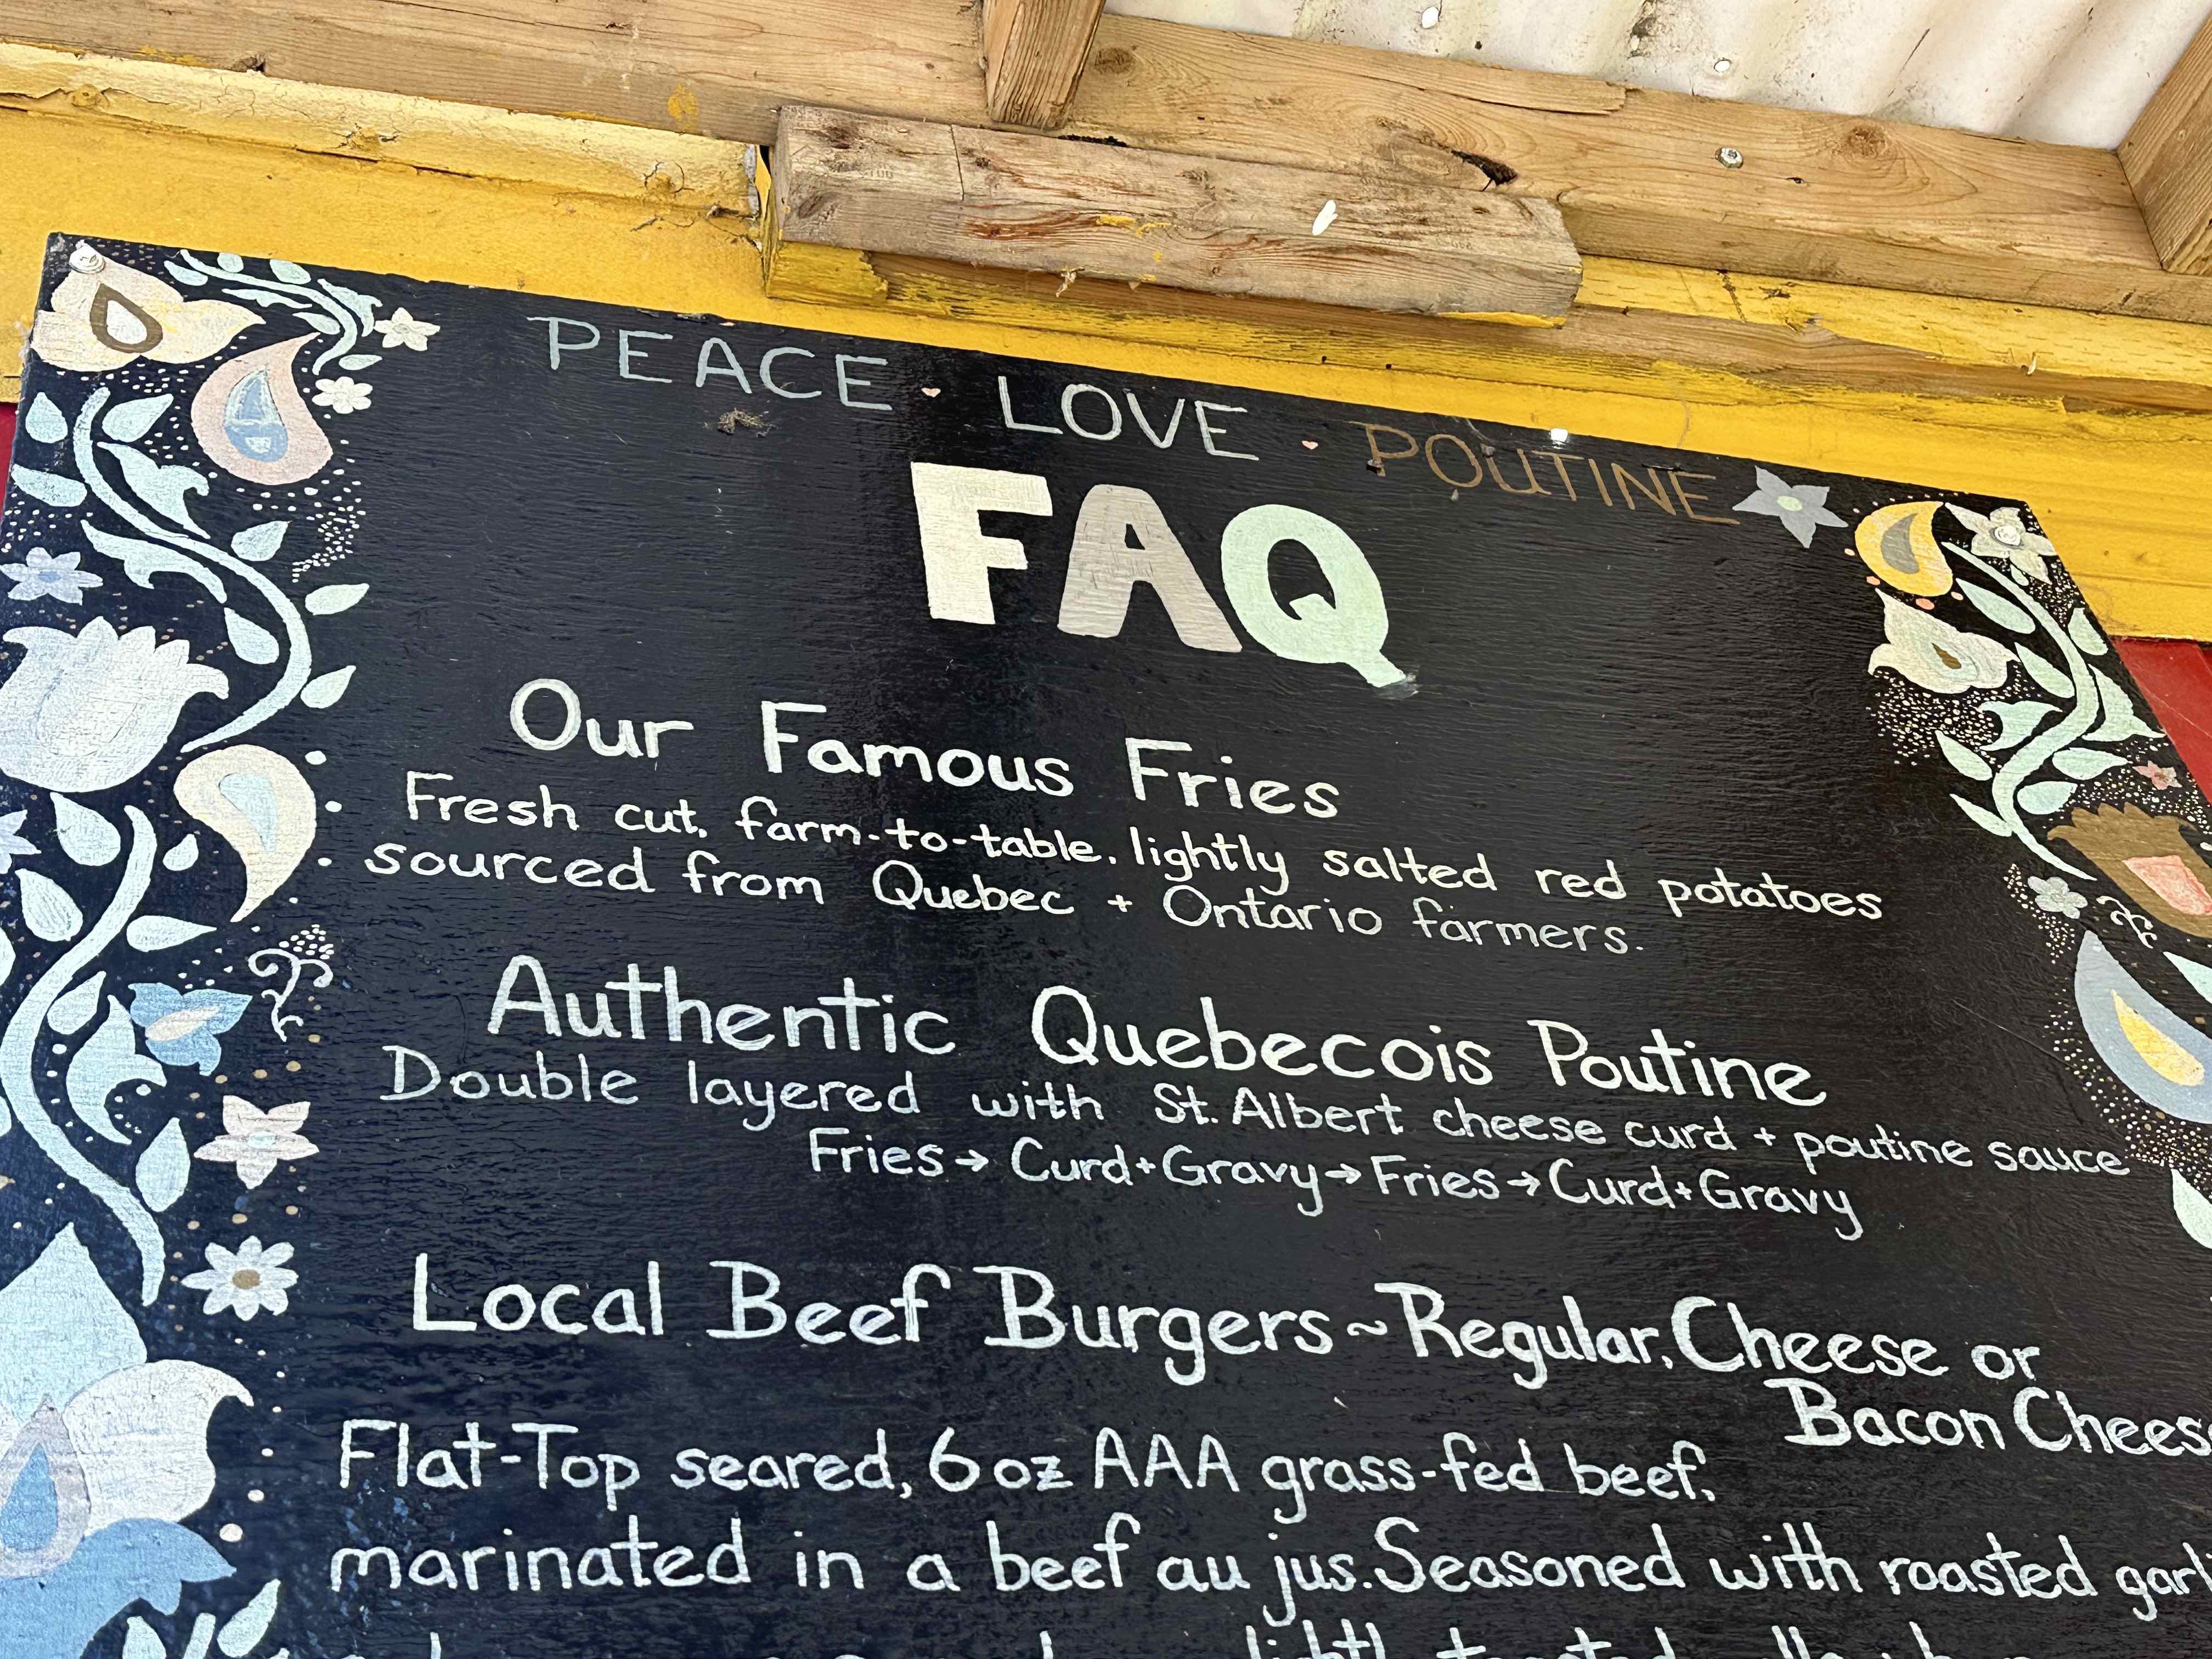 PEACE · LOVE · POUTINE
FAQ
Our Famous Fries
Fresh cut, farm-to-table, lightly salted red potatoes
sourced from Quebec + Ontario farmers.
Authentic Quebecois Poutine
Double layered with St. Albert cheese curd + poutine sauce
Fries → Curd + Gravy → Fries → Curd + Gravy
Local Beef Burgers ~ Regular, Cheese or
Bacon Cheese
Flat-Top seared, 6 oz AAA grass-fed beef,
marinated in a beef au jus. Seasoned with roasted